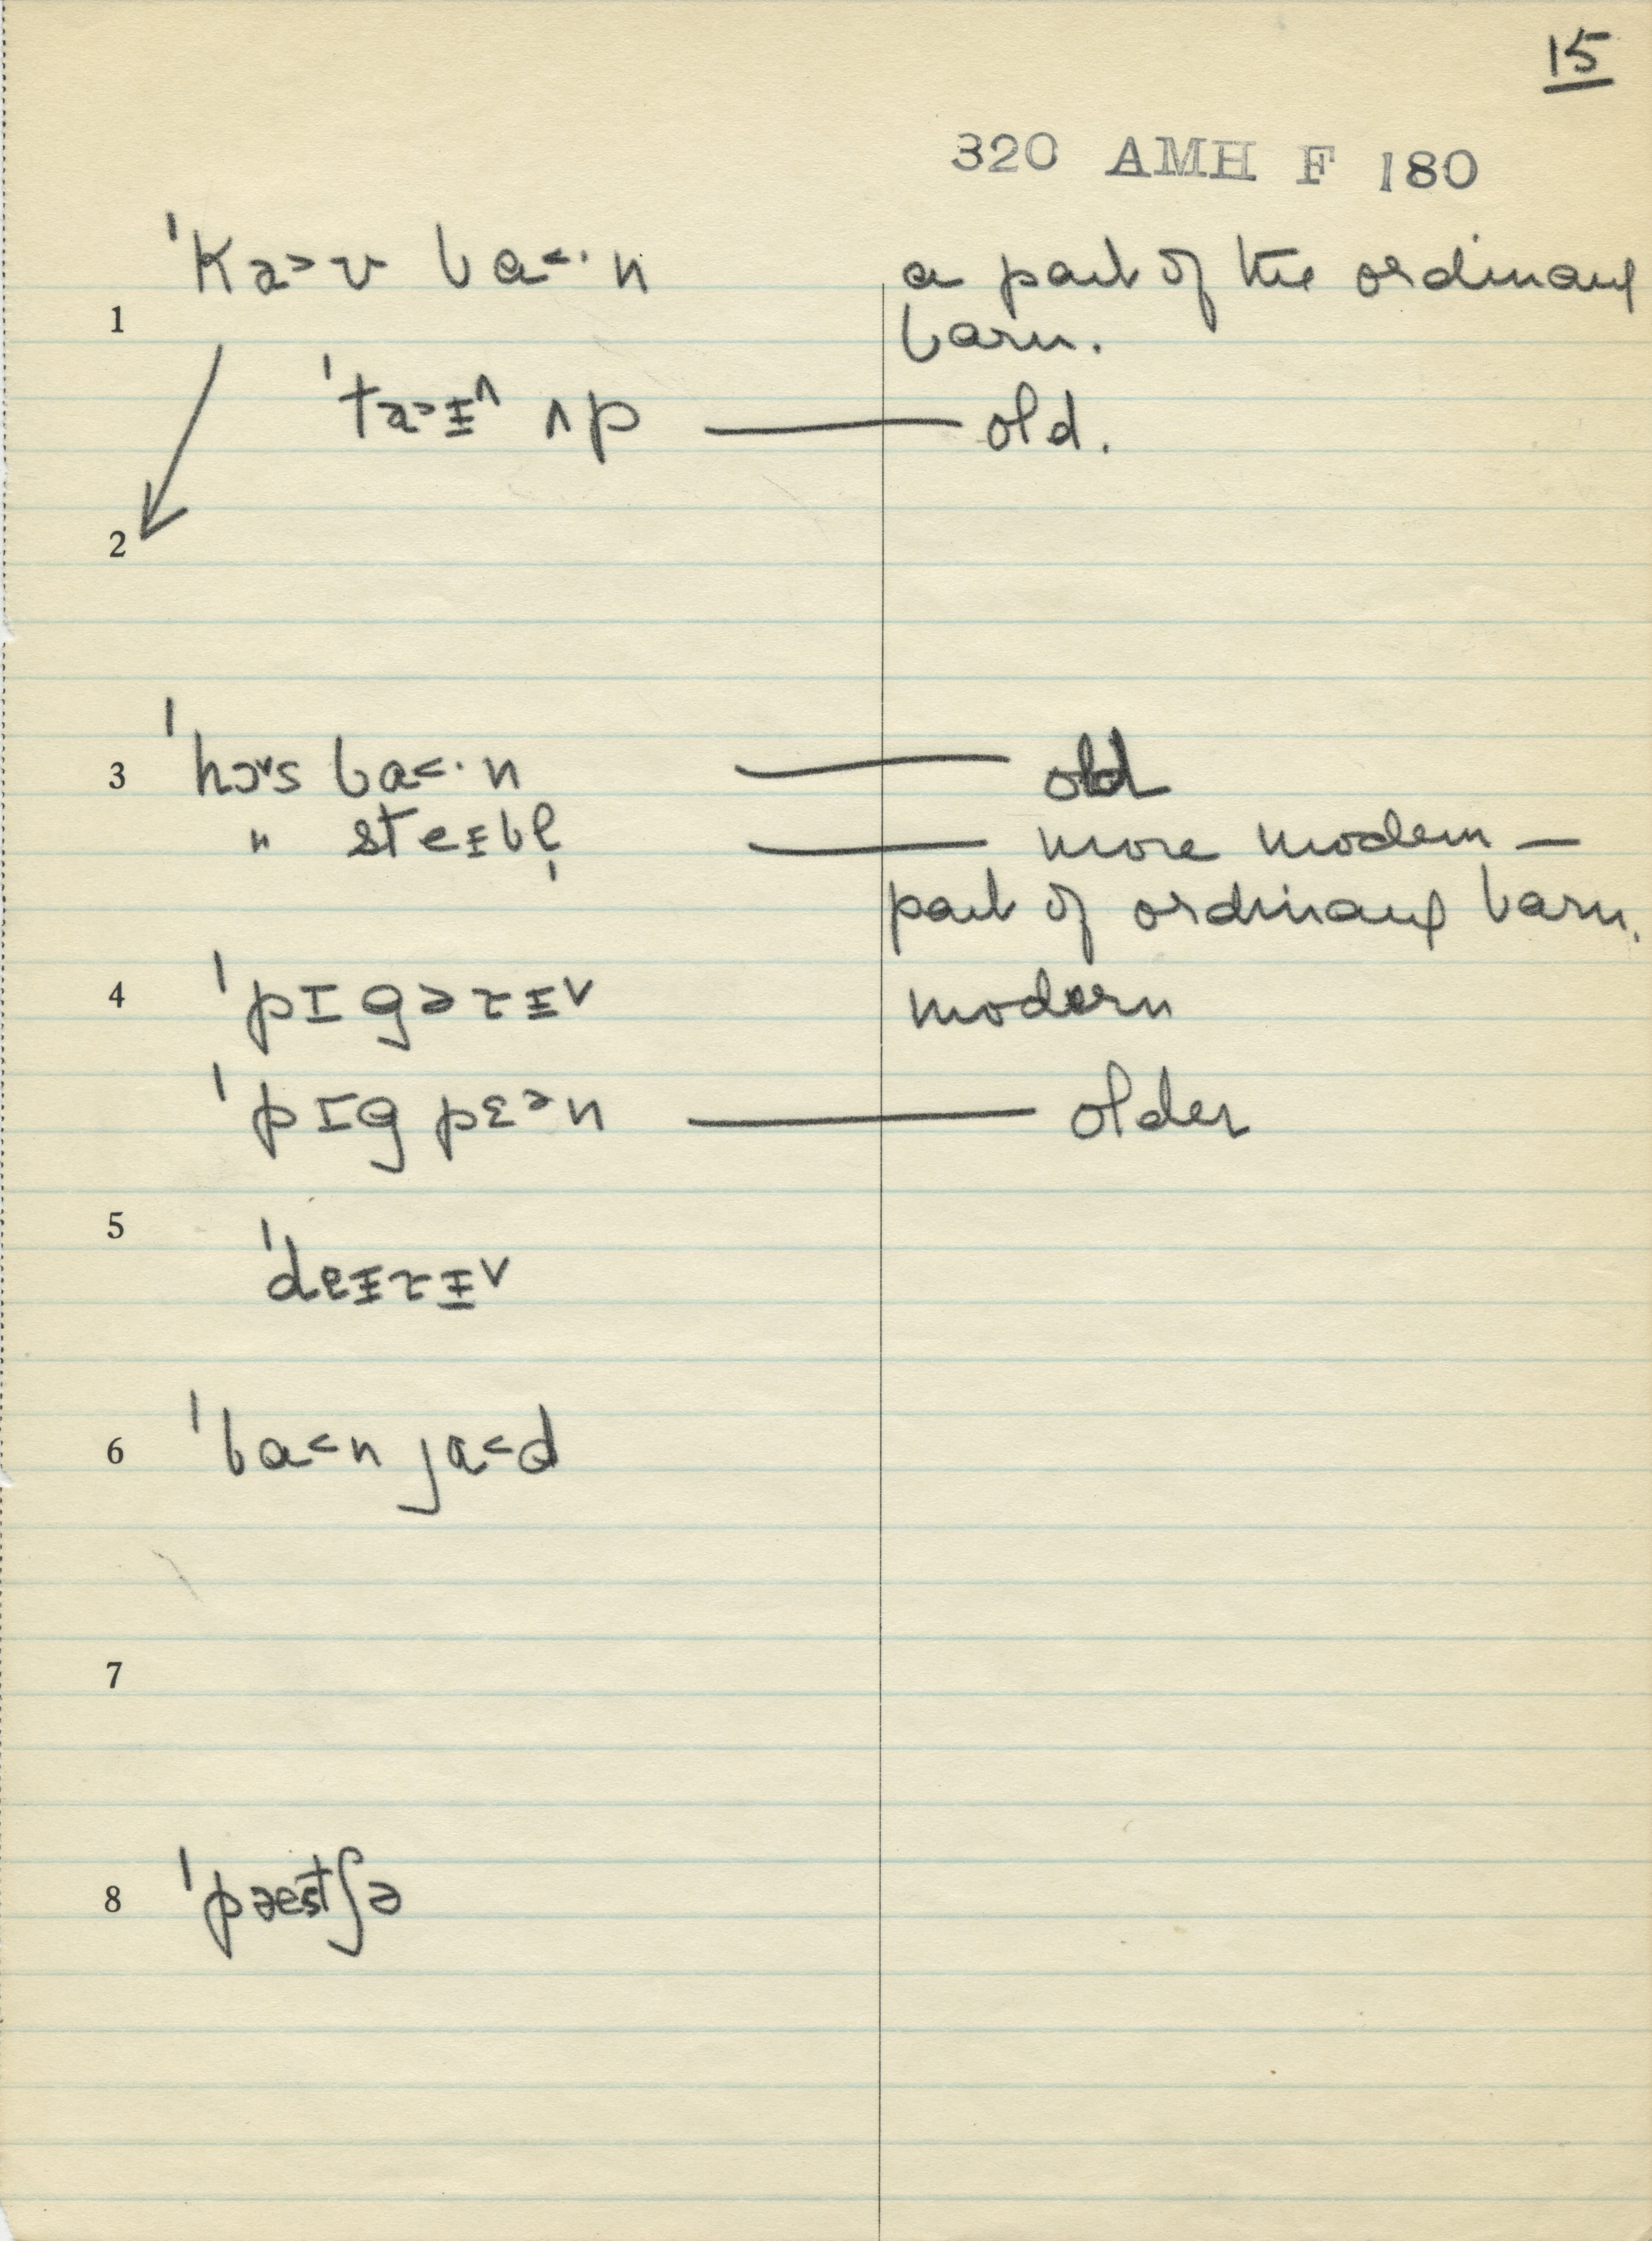 15
320 AMH F 180
ˈka˃ʊ ba˂·n a part of the ordinary
1 barn.
ˈta˃ɪ̵˄ ʌp — old.
2
3 ˈhɔ˅s ba˂·n — old
" steɪ̵bl̩ — more modern —
part of ordinary barn.
4 ˈpɪgərɪ̵˅ modern
ˈpɪg pɛᵊn — older
5
ˈdeɪ̵rɪ̵˅
6 ˈba˂n ja˂d
7
8 ˈpæstʃə